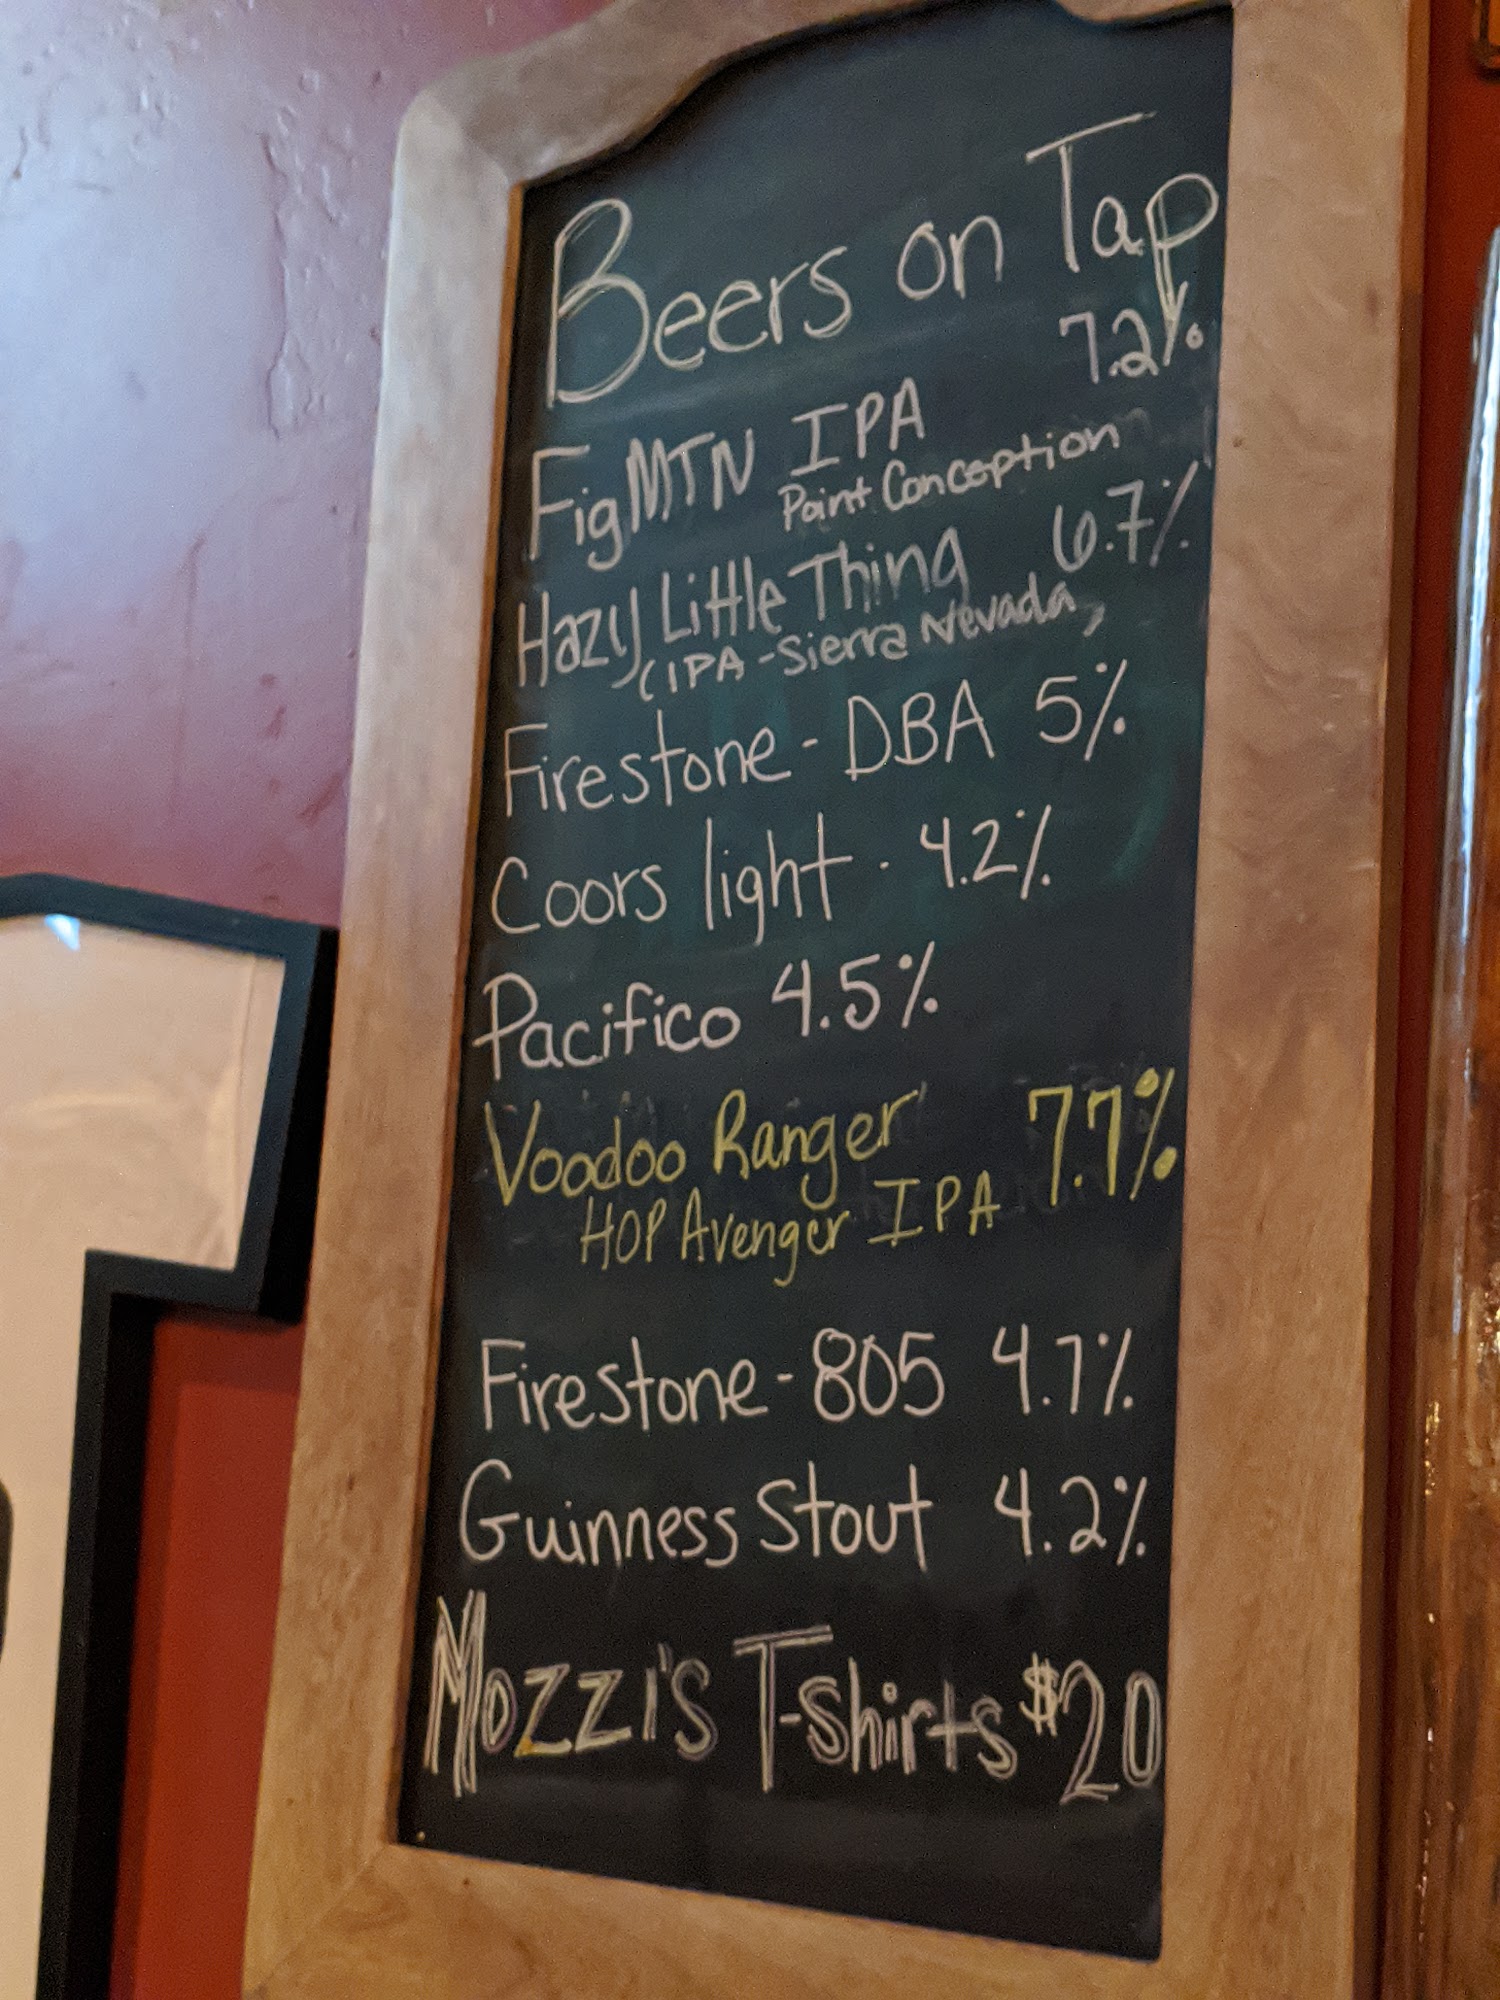 Beers on Tap
FigMTN IPA 7.2%
Point Conception
Hazy Little Thing 6.7%
(IPA - Sierra Nevada)
Firestone - DBA 5%
Coors light . 4.2%
Pacifico 4.5%
Voodoo Ranger 7.7%
HOP Avenger IPA
Firestone - 805 4.7%
Guinness Stout 4.2%
Mozzi's T-shirts $20